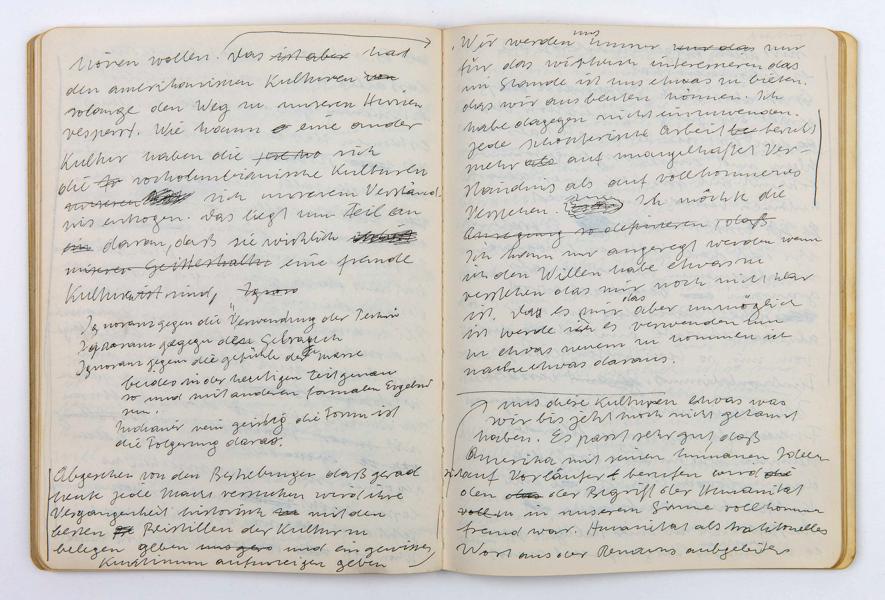 hören wollen. Das ist aber hat
den amerikanischen Kulturen von
solange den Weg zu unseren Hirnen
versperrt. Wie kaum eine ander
Kultur haben die sich
die vorkolumbianische Kulturen
unseren sich unserem Verständ-
nis entzogen. Das liegt zum Teil an
ein daran, daß sie wirklich
unserer Geisteshaltu eine fremde
Kultur ist sind, Ignora
Ignoranz gegen die Verwendung der Technik
Ignoranz gegen den Gebrauch
Ignoranz gegen die gefühle der Masse
beides in der heutigen Zeit genau
so und mit anderen formalen Ergebnis
sen.
Indianer rein geistig die Form ist
die Folgerung daraus.
Abgesehen von den Bestrebungen daß gerad
heute jede Macht versuchen wird ihre
Vergangenheit historisch mit den
besten Beistillen der Kultur zu
belegen geben und ein gewisses
aufzuzeigen geben
Wir werden uns immer nur das nur
für das wirklich interessieren das
im Stande ist uns etwas zu bieten.
das wir ausbeuten können. Ich
habe dagegen nichts einzuwenden.
jede schöpferische Arbeit be beruht
mehr als auf mangelhaftes Ver-
ständnis als auf vollkommenes
Verstehen. Ich möchte die
Anregung so definieren, daß
Ich kann nur angeregt werden wenn
ich den Willen habe etwas zu
verstehen das mir noch nicht klar
ist. das es mir aber unmöglich
ist werde ich es verwenden um
zu etwas neuem zu kommen ich
mache etwas daraus.
uns diese Kulturen etwas was
wir bis jetzt noch nicht gekannt
haben. Es passt sehr gut daß
Amerika mit seinen humanen Ideen
sich auf Vorläufer berufen wird die
den der Begriff der Humanität
voll in unserem Sinne vollkommen
fremd war. Humanität als traktionelles
Wort aus der Renaiss aufgebautes